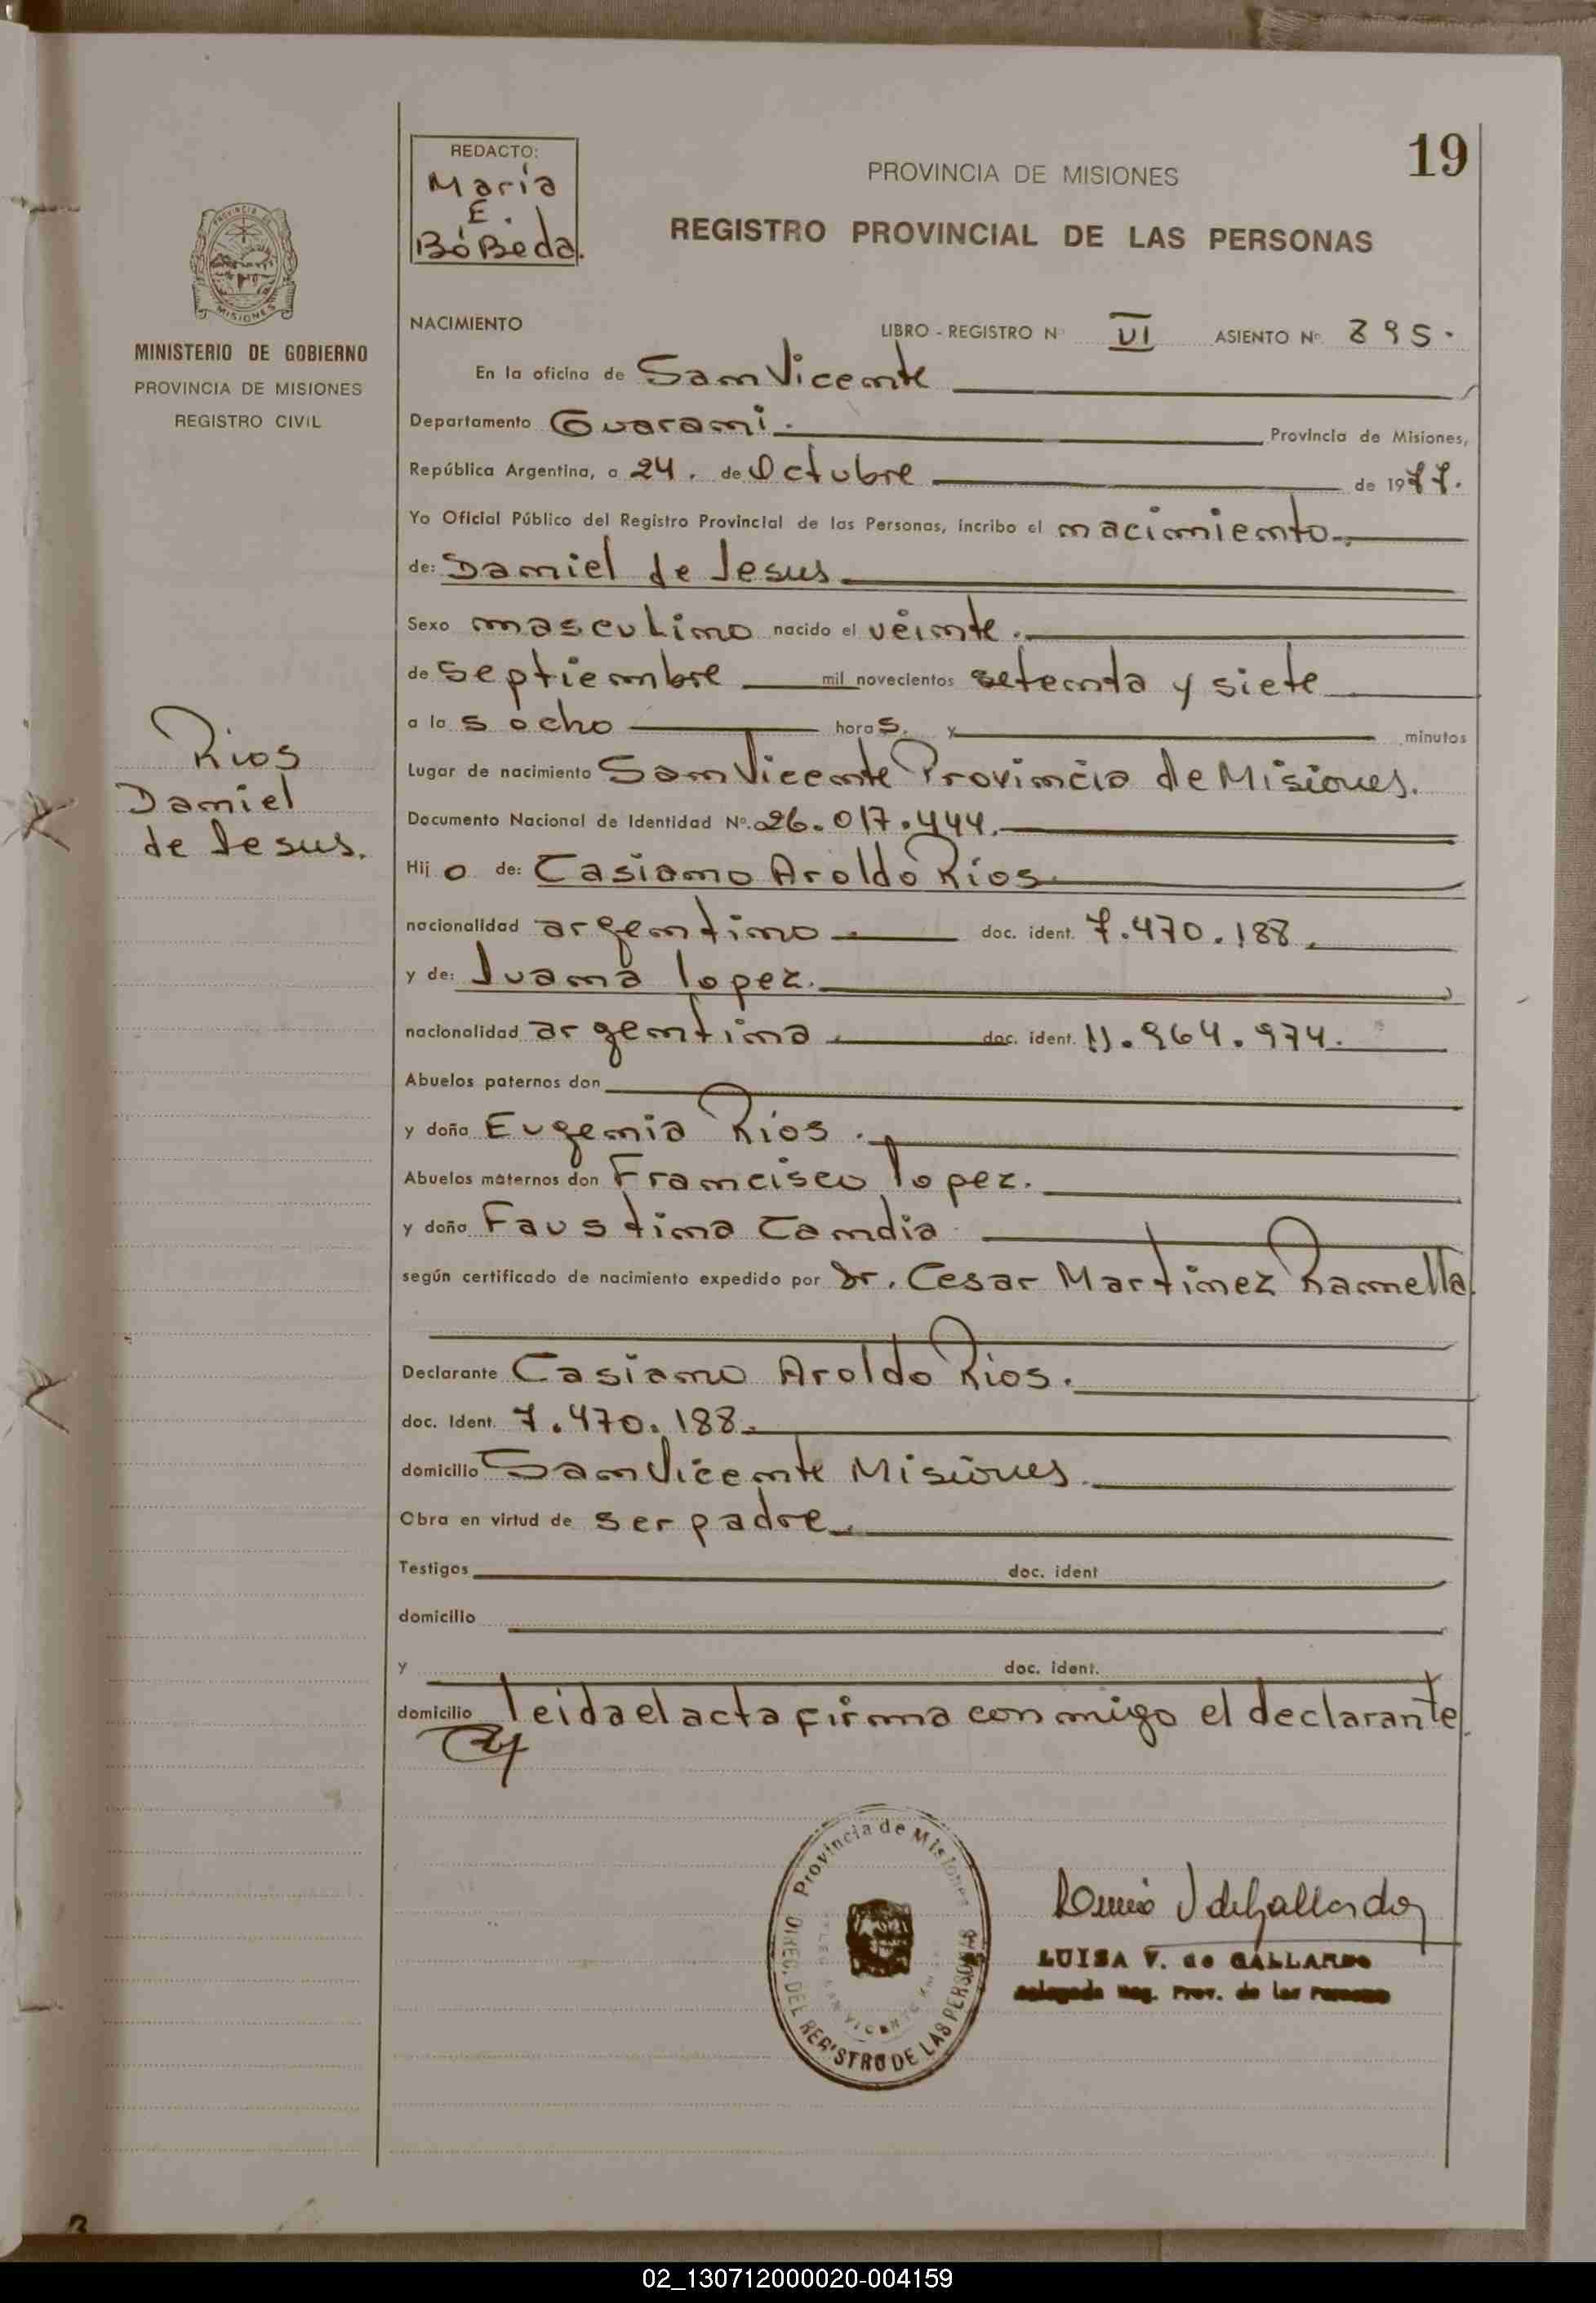 19
REDACTO:
Maria
E.
BóBeda.
PROVINCIA DE MISIONES
REGISTRO PROVINCIAL DE LAS PERSONAS
MINISTERIO DE GOBIERNO
PROVINCIA DE MISIONES
REGISTRO CIVIL
NACIMIENTO LIBRO - REGISTRO Nº VI ASIENTO Nº 895.
En la oficina de San Vicente
Departamento Guarani. Provincia de Misiones,
República Argentina, a 24. de Octubre de 1977.
Yo Oficial Público del Registro Provincial de las Personas, incribo el nacimiento.
de: Daniel de Jesus
Sexo masculino nacido el veinte.
de septiembre mil novecientos setenta y siete
a las ocho horas. y minutos
Lugar de nacimiento San Vicente Provincia de Misiones.
Documento Nacional de Identidad Nº. 26.017.444.
Hijo de: Casiano Aroldo Rios
nacionalidad argentino doc. ident. 7.470.188.
y de: Juana lopez.
nacionalidad argentina doc. ident. 11.964.974.
Abuelos paternos don
y doña Eugenia Rios.
Abuelos maternos don Francisco lopez.
y doña Faustina Candia
según certificado de nacimiento expedido por Dr. Cesar Martinez Ramella.
Declarante Casiano Aroldo Rios.
doc. Ident. 7.470.188.
domicilio San Vicente Misiones.
Obra en virtud de ser padre.
Testigos doc. ident
domicilio
y doc. ident.
domicilio leida el acta firma conmigo el declarante.
Rios
Daniel
de Jesus.
Provincia de Misiones
DIREC. DEL REGISTRO DE LAS PERSONAS
LUISA V. de GALLARDO
Delegada Reg. Prov. de las Personas
02_130712000020-004159